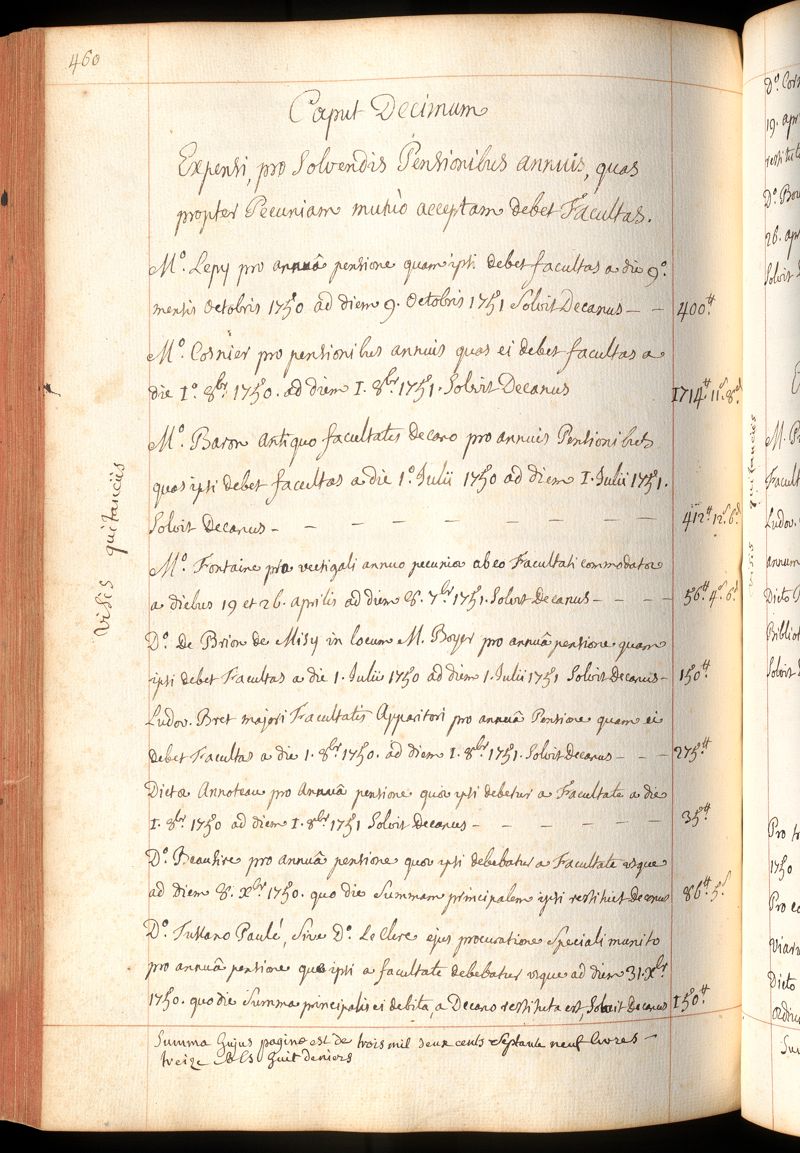 460
Caput Decimum
Expensi, pro Solvendis Pensionibus annuis, quas
propter Pecuniam mutuò acceptam debet Facultas.
M.º Lepy pro annuâ pensione quam ipsi debet facultas a die 9.º
mensis Octobris 1750 ad diem 9. Octobris 1751 Solvit Decanus — — 400.ᵗᵗ
M.º Cosnier pro pensionibus annuis quas ei debet facultas a
die 1.º 8.ᵇʳ 1750. ad diem 1. 8.ᵇʳ 1751. Solvit Decanus 1714ᵗᵗ 11.ˢ 8.ᵈ
M.º Baron antiquo facultatis decano pro annuis Pensionibus
quas ipsi debet facultas a die 1.º Julii 1750 ad diem 1. Julii 1751.
Solvit Decanus - — — — — — — — — 412ᵗᵗ 12.ˢ 6.ᵈ
M.º Fontaine pro vectigali annuo pecuniæ ab eo Facultati commodatæ
a diebus 19 et 26. aprilis ad diem 8. 7.ᵇʳ 1751. Solvit Decanus - — — — 56ᵗᵗ 4.ˢ 6.ᵈ
D.º De Brion de Misy in locum M. Boyer pro annuâ pensione quam
ipsi debet Facultas a die 1. Julii 1750 ad diem 1. Julii 1751 Solvit Decanus - 150.ᵗᵗ
Ludov. Bret majori Facultatis Apparitori pro annuâ Pensione quam ei
debet Facultas a die 1. 8.ᵇʳ 1750. ad diem 1. 8.ᵇʳ 1751. Solvit Decanus - — — 275.ᵗᵗ
Dictæ Annoteau pro annuâ pensione quæ ipsi debetur a Facultate a die
1. 8.ᵇʳ 1750 ad diem 1. 8.ᵇʳ 1751 Solvit Decanus - — — — — — 35.ᵗᵗ
D.º Beausire pro annuâ pensione quæ ipsi debebatur a Facultate usque
ad diem 8. X.ᵇʳ 1750. quo die Summam principalem ipsi restituit Decanus 86ᵗᵗ 5.ˢ
D.º Tussano Paulé, sive D.º Le Clerc ejus procuratione Speciali munito
pro annuâ pensione quæ ipsi a facultate debebatur usque ad diem 31. X.ᵇʳ
1750. quo die Summa principalis ei debita, a Decano restituta est, Solvit Decanus 150.ᵗᵗ
Summa hujus paginæ est de trois mil deux cents septante neuf livres —
treize sols huit deniers
visis quitanciis
D.º Cosn
19. apr
restitut
26. apr
M. P
Facult
Ludov.
annum
Dicto
Biblio
Solvit
visis quitanciis
Pro
1750
Pro
viar
Dicto